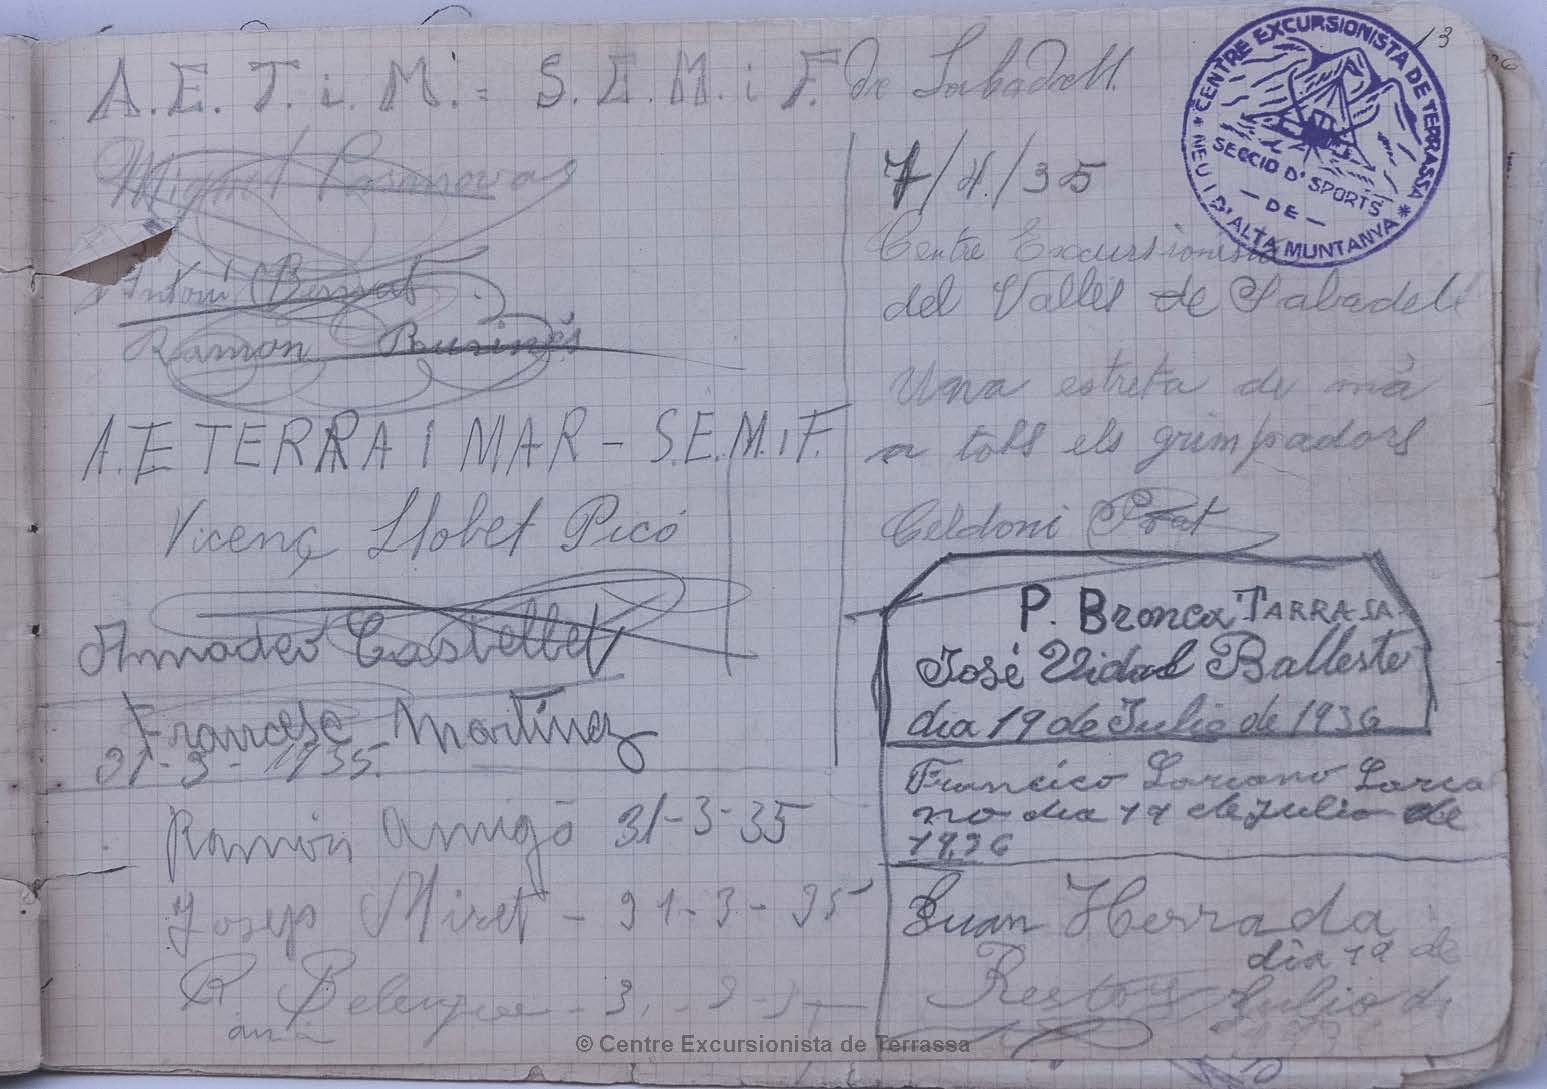 A.E.T. i. M. = S.E.M. i F. de Sabadell
13
Miquel Casanovas
Antoni Bernat
Ramón
A.E TERRA I MAR - S.E.M. i F.
Vicenç Llobet Picó
Amadeo Castellet
Francesc Martínez
31-3-1935.
Ramón Amigó 31-3-35
Josep Miret - 31-3-35
R.
7/4/35
Centre Excursionista
del Vallès de Sabadell
Una estreta de mà
a tots els grimpadors
Celdoni Prat
P. Bronca TARRASA
José Vidal Balleste
dia 19 de Julio de 1936
Francico Lorcano Lorca
no dia 19 de Julio de
1936
Juan Herrada
dia 19 de
Julio de
CENTRE EXCURSIONISTA DE TERRASSA
SECCIÓ D'ESPORTS
- DE -
* NEU I D'ALTA MUNTANYA *
© Centre Excursionista de Terrassa